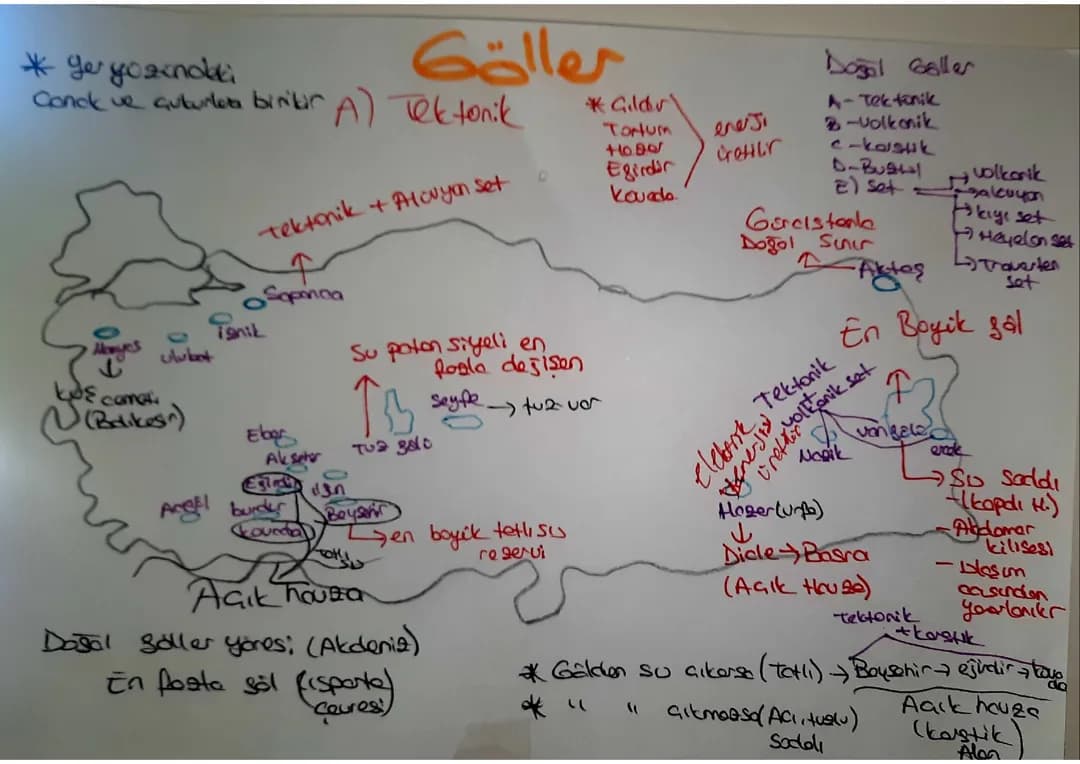 Göller
* yer yüzündeki
Çanak ve çukurlara birikir
A) Tektonik
* Çıldır
Tortum
Hazar
Eğirdir
Kovada
enerji
üretilir
Doğal Göller
A- Tektonik
B -Volkanik
C -karstik
D-Buzul
E) Set
→ volkanik
→ alüvyon
→ kıyı set
→ Heyelan set
→ Traverten
set
Tektonik + Alüvyon set
Sapanca
Gürcistanla
Doğal Sınır
Aktaş
Manyas
Ulubat
iznik
kuş cenneti
(Balıkesir)
Su potansiyeli en
fazla değişen
Tuz gölü
Seyfe → tuz var
En Büyük göl
Tektonik
+
volkanik set
Van gölü
erçek
Nazik
Elektrik
enerjisi
üretilir
Hazar (urfa)
Dicle → Basra
(Açık Havza)
→ Su Soddı
(kapalı H.)
- Akdamar
kilisesi
- Ulaşım
açısından
yararlanılır
Eber
Akşehir
Eğirdir
ılgın
Acıgöl
burdur
Beyşehir
kovada
→ en büyük tatlı su
rezervi
Tatlı
su
Açık havza
Doğal göller yöresi (Akdeniz)
En fazla göl (ısparta)
Çevresi)
Tektonik
+ karstik
* Gölden su çıkarsa (Tatlı) → Beyşehir → eğirdir → kovada
* " " çıkmazsa (Acı, tuzlu)
Sodalı
Açık havza
(karstik
Alan)